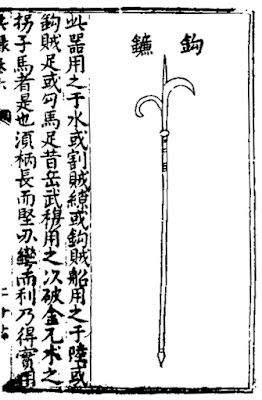 鈎鐮
此器用之于水或割賊繚或鈎賊船用之于陸或
鈎賊足或勾馬足昔岳武穆用之以破金兀朮之
拐子馬者是也湏柄長而堅刃彎而利乃得實用